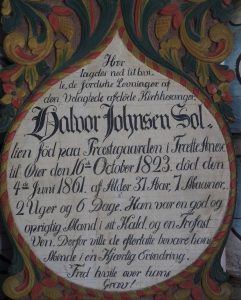 Her
lagdes ned til hvi-
le, de jordiske Levninger af
den Velagtede afdöde Kirkesanger,
Halvor Johnsen Sol-
lien föd paa Præstegaarden i Trætte Anex
til Öier den 16de October 1823, död den
4de Juni 1861, af Alder 37 Aar, 7 Maaner,
2 Uger og 6 Dage. Ham var en god og
oprigtig Mand i sit Kald, og en Trofast
Ven. Derfor ville de efterlatte bevare hans
Minde i en Kjærlig Erindring.
Fred hvile over hans
Grav!